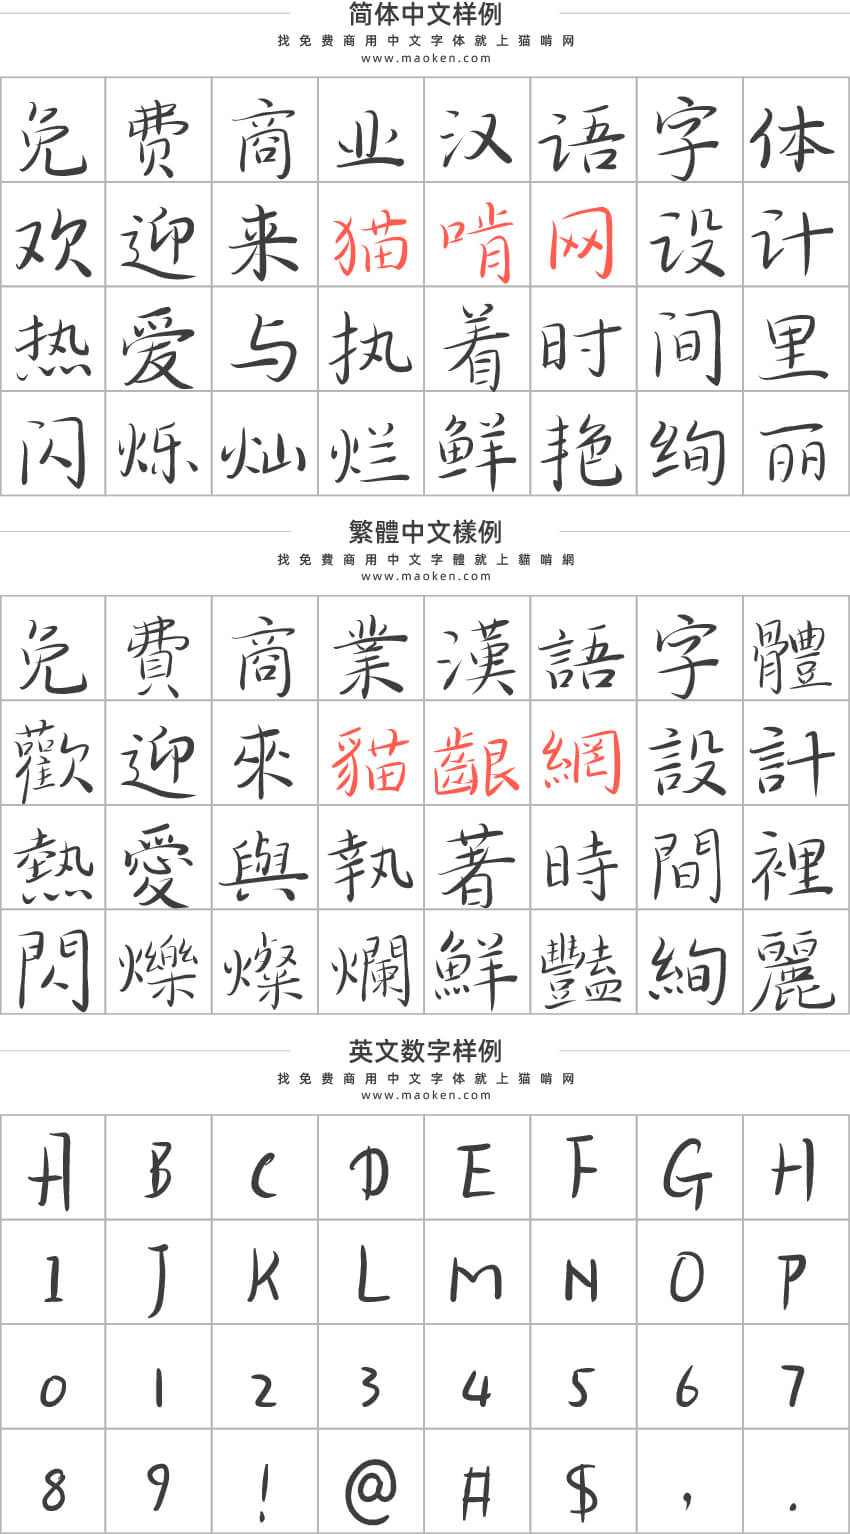 简体中文样例
找免费商用中文字体就上猫啃网
www.maoken.com
免费商业汉语字体
欢迎来猫啃网设计
热爱与执着时间里
闪烁灿烂鲜艳绚丽
繁體中文樣例
找免費商用中文字體就上貓啃網
www.maoken.com
免費商業漢語字體
歡迎來貓齦網設計
熱愛與執著時間裡
閃爍燦爛鮮豔絢麗
英文数字样例
找免费商用中文字体就上猫啃网
www.maoken.com
A B C D E F G H
I J K L M N O P
0 1 2 3 4 5 6 7
8 9 ! @ # $ , .